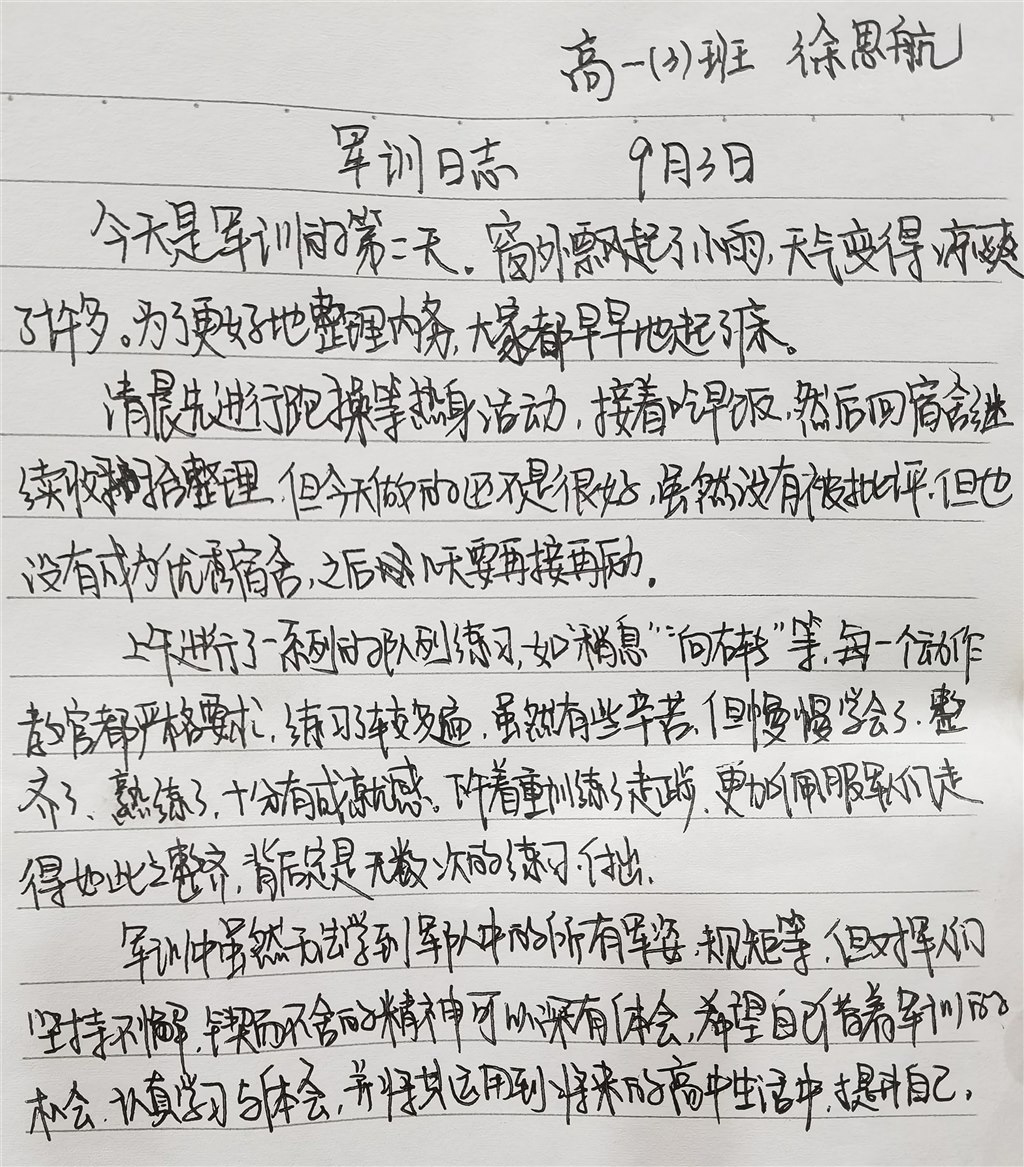 高一(3)班 徐思航
军训日志 9月3日
今天是军训的第二天。窗外飘起了小雨,天气变得凉爽
了许多。为了更好地整理内务,大家都早早地起了床。
清晨先进行跑操等热身活动,接着吃早饭,然后回宿舍继
续收拾整理,但今天做的还不是很好,虽然没有被批评,但也
没有成为优秀宿舍,之后几天要再接再励。
上午进行了一系列的队列练习,如“稍息”“向右转”等,每一个动作
教官都严格要求,练习了较多遍,虽然有些辛苦,但慢慢学会了、整
齐了、熟练了,十分有成就感。下午着重训练了走正步,更加佩服军人们走
得如此之整齐,背后定是无数次的练习、付出。
军训中虽然无法学到军队中的所有军姿、规矩等,但对军人们
坚持不懈、锲而不舍的精神可以深有体会,希望自己借着军训的
机会,认真学习与体会,并将其运用到将来的高中生活中,提升自己。